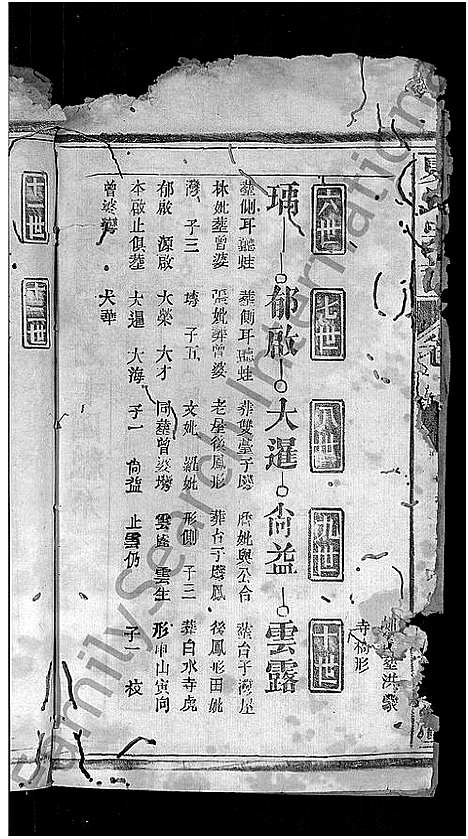 寺椅形
六世 七世 八世 九世 十世
瑀 郁啟 大暹 尚益 雲露
葬側耳聽蛙 葬側耳聽蛙 葬雙臺子塆 妣與公合 葬台子灣屋
林妣葬曾婆 張妣葬曾婆 老屋後鳳形 葬台子塆鳳 後鳳形田妣
灣 子三 塆 子五 文妣 羅妣 形側 子三 葬白水寺虎
郁啟 源啟 大榮 大才 同葬曾婆塆 雲露 雲生 形甲山寅向
本啟止俱葬 大暹 大海 子一 尚益 止雲仍 子一 校
曾婆灣 大華
十一世 十二世
FamilySearch International